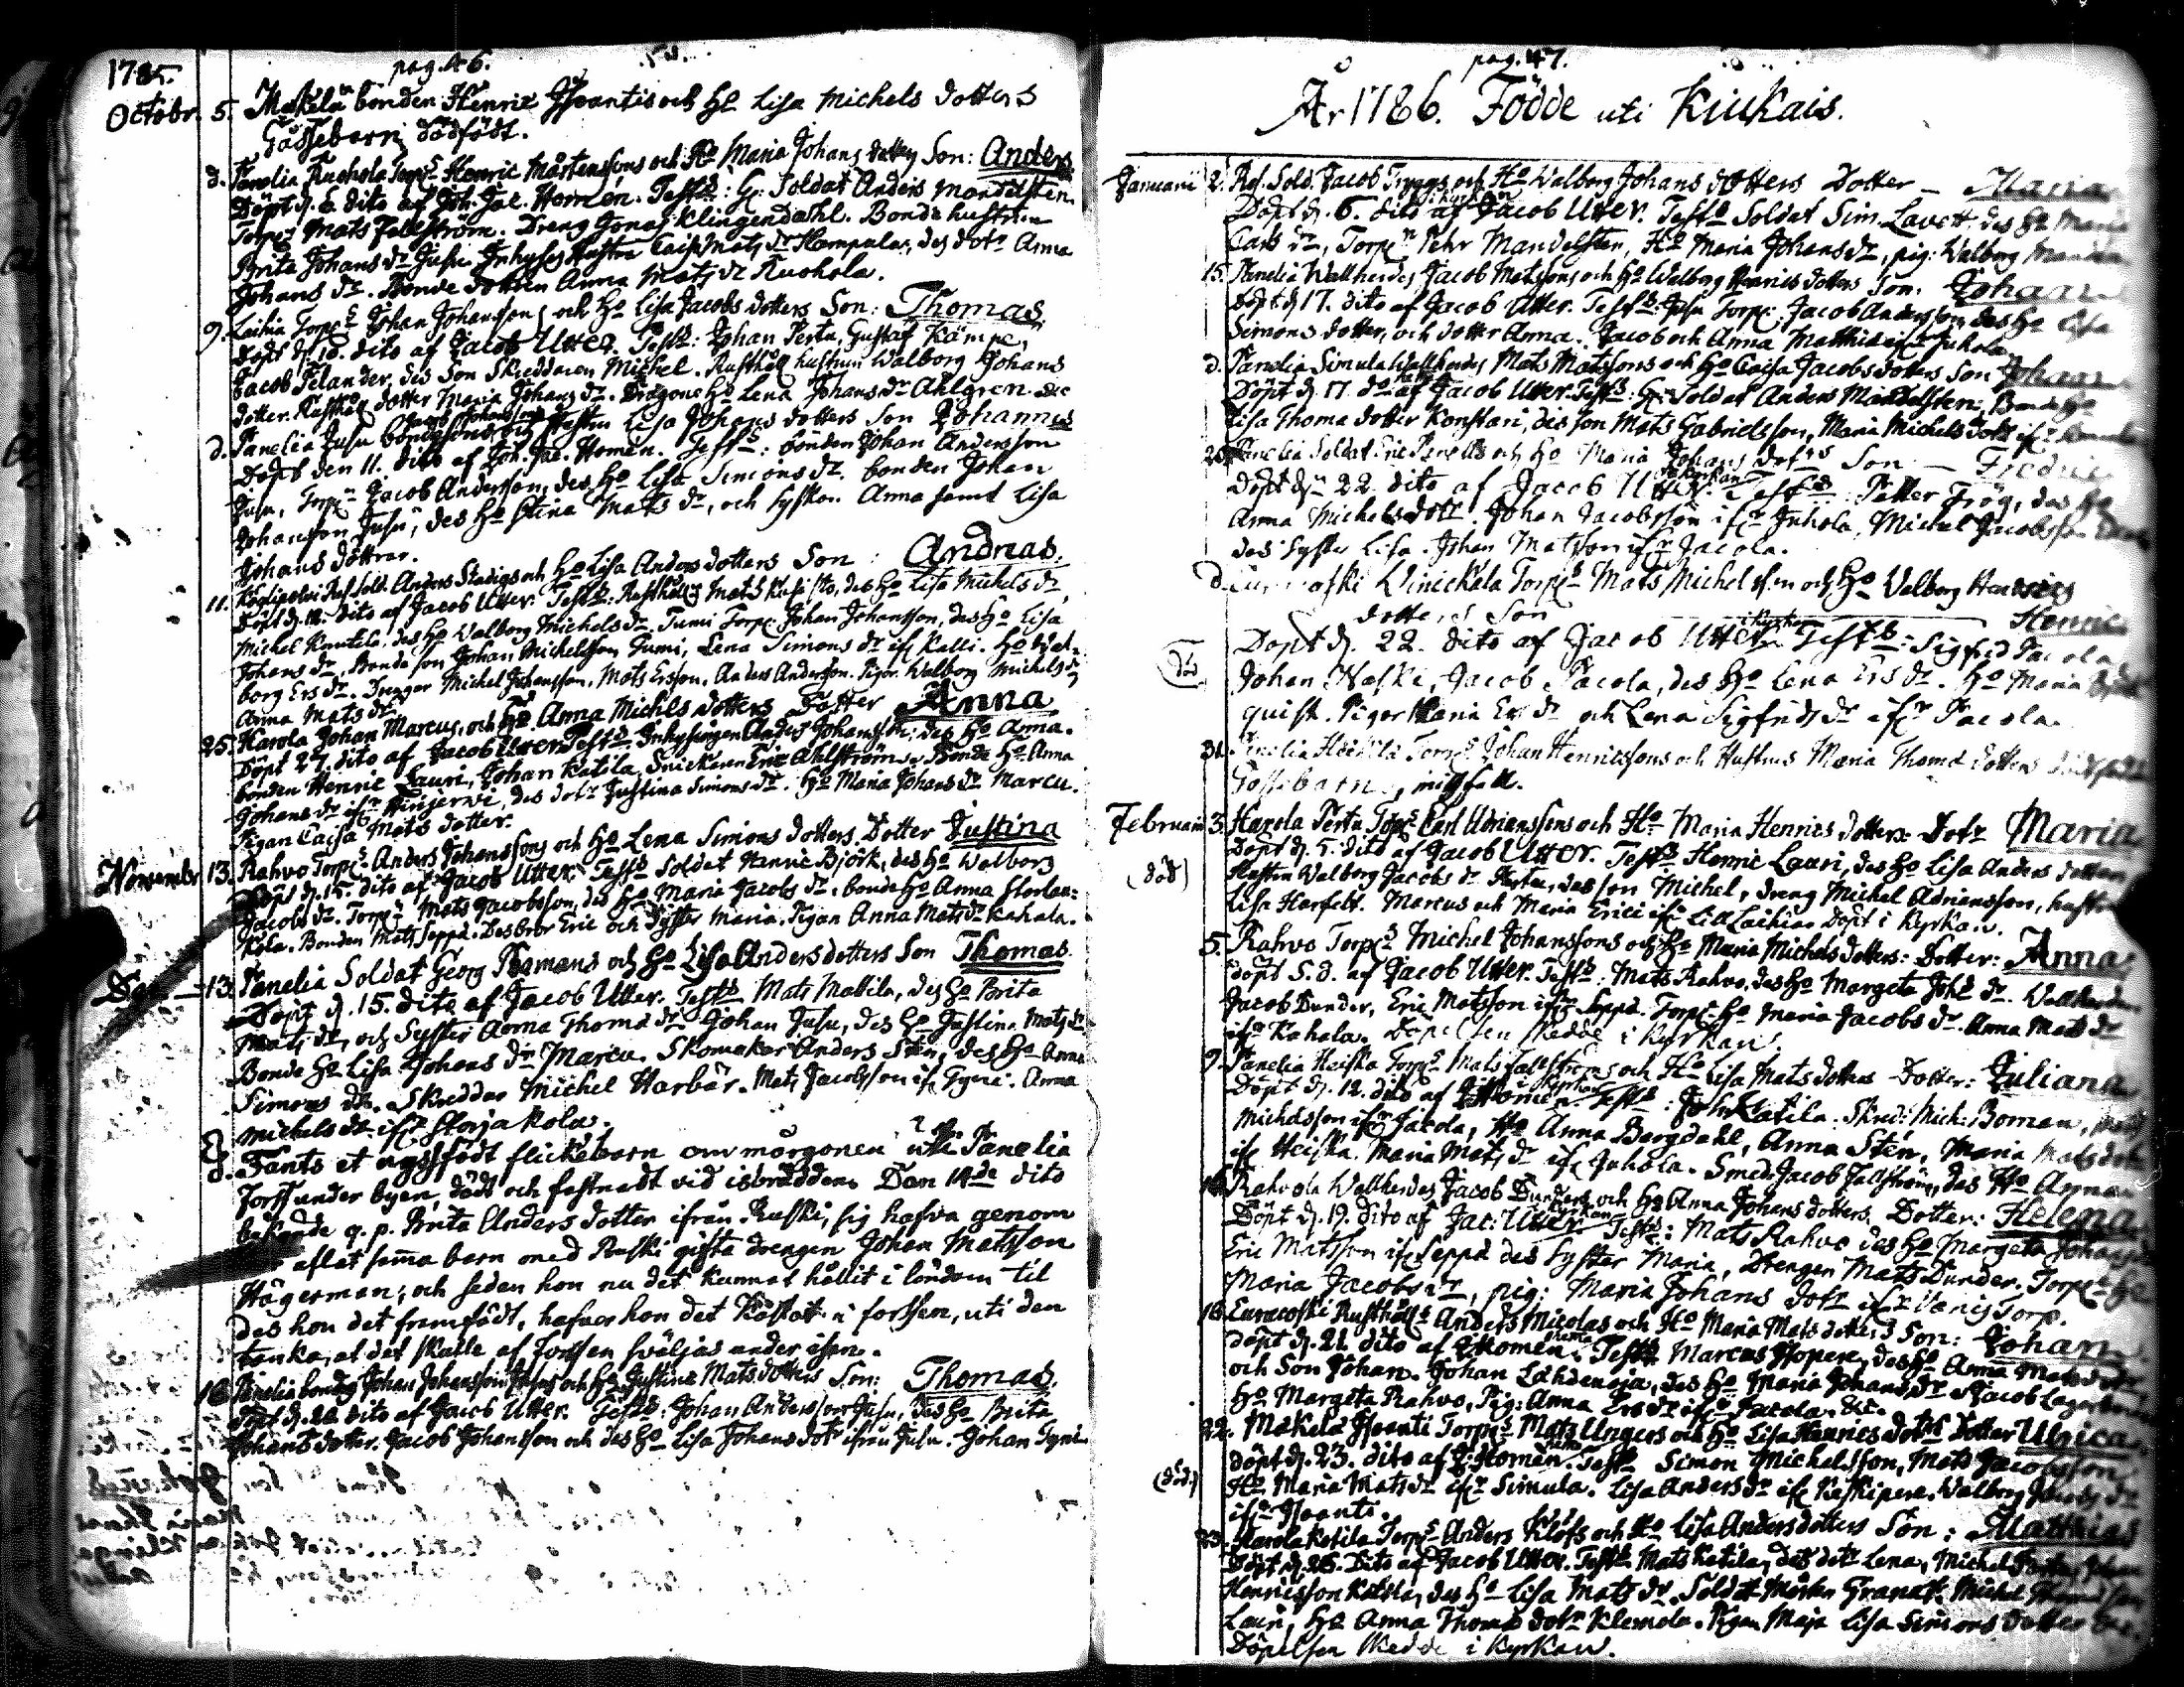 1785.
pag. 46.
Octobr. 5. Mäkelä bonden Henric Isoantis och Ho Lisa Michels dotters
Gåssebarn, dödfödt.
d. Panelia Kuohola Torp.s Henric Mårtenssons och Ho Maria Johans dotters Son: Anders
Döpt d. 6. dito af Joh. Jac. Homén. Test.s: Gl. Soldat Anders Mandelsten.
Torp.n Mats Fallström. Dreng Jonas Klingendahl. Bonde hustrun
Brita Johans dr Jusu. Inhyses Hustru Caisa Mats dr Kampula, des dotr Anna
Johans dr. Bonde dottren Anna Mats dr Kuohola.
9. Laihia Torp.s Johan Johanssons och Ho Lisa Jacobs dotters Son: Thomas
Döpt d. 10. dito af Jacob Utter. Test.s: Johan Pertu, Gustaf Kämpe,
Jacob Telander, des Son Skreddaren Michel. Rusthåll hustrun Walborg Johans
dotter. Rusthåll dotter Maria Johans dr. Dragone Ho Lena Johans dr Ahlgren.
d. Panelia Jusu bondesons Jacob Johanssons och Hustru Lisa Johans dotters Son Johannes
Döpt den 11. dito af Joh. Jac. Homén. Test.s: bonden Johan Andersson
Jusu, Torp.n Jacob Andersson, des Ho Lisa Simons dr. bonden Johan
Johansson Jusu, des Ho Stina Mats dr, och syskon Anna samt Lisa
Johans döttrar.
11. Ref Sold. Anders Stadigs och Ho Lisa Anders dotters Son: Andreas.
Döpt d. 12. dito af Jacob Utter. Test.s: Rusthåll.n Mats, des Ho Lisa Michels dr,
Michel Knutila, des Ho Walborg Michels dr. Tumi Torp. Johan Johansson, des Ho Lisa
Johans dr, Bonde son Johan Michelsson Tumi, Lena Simons dr ifr Kalli. Ho Wal-
borg Ers dr. Drenger Michel Johansson, Mats Ersson, Anders Andersson. Pigor. Walborg Michels dr
Anna Mats dr.
25. Harola Johan Marcus, och Ho Anna Michels dotters Dotter Anna
Döpt 27. dito af Jacob Utter. Test.s Inhysingen Anders Johansson, des Ho Anna.
bonden Henric Lauri, Johan Katila, Snickaren Eric Ahlström. Bonde Ho Anna
Johans dr ifr Hirvjerwi, des dotr Justina Simons dr. Ho Maria Johans dr Marcu.
Pigan Caisa Mats dotter.
Novembr. 13. Rahvo Torp.s Anders Johanssons och Ho Lena Simons dotters Dotter Justina
Döpt d. 15. dito af Jacob Utter. Test.s Soldat Henric Björk, des Ho Walborg
Jacobs dr. Torp.n Mats Jacobsson, des Ho Maria Jacobs dr. bonde Ho Anna Storlau-
kola. Bonden Mats Seppä. Des bror Eric och Syster Maria. Pigan Anna Mats dr Kahala.
Dec. 13. Panelia Soldat Georg Romans och Ho Lisa Anders dotters Son Thomas
Döpt d. 15. dito af Jacob Utter. Test.s Mats Mattila, des Ho Brita
Mats dr, och Syster Anna Thoma dr. Johan Jusu, des Ho Justina Mats dr
Bonde Ho Lisa Johans dr Marcu. Skomakar Anders Stén, des Ho Anna
Simons dr. Skreddar Michel Harbär. Mats Jacobsson ifr Tyni. Anna
Michels dr ifr Storjakola.
d. Fants et nyssfödt flickebarn om morgonen uti Panelia
forss under byen, dödt och fastnadt vid isbrädden. Den 14de dito
bekände q. p. Brita Anders dotter ifrån Ruski, sig hafva genom
aflat sam̃a barn med Ruski gifta drengen Johan Matsson
Hägerman; och sedan hon nu det kunnat hållit i löndom til
des hon det framfödt, hafver hon det kastat i forssen, uti den
tanka, at det skulle af forssen sväljas under isen.
18. Panelia bonden Johan Johansson Jusus och Ho Justina Mats dotters Son: Thomas.
Döpt d. 20 dito af Jacob Utter. Test.s: Johan Andersson Jusu, des Ho Brita
Johans dotter. Jacob Johansson och des Ho Lisa Johans dotr ifrån Jusu. Johan Tyni.
pag. 47.
År 1786. Födde uti Kiukais.
Januarii 2. Ref. Sold. Jacob Tryggs och Ho Walborg Johans dotters Dotter – Maria
Döpt d. 6. dito i Kyrk. af Jacob Utter. Test.s Soldat Sim. Lavett, des Ho Maria
Carls dr, Torp.n Pehr Mandelsten, Ho Maria Johans dr, pig: Walborg
15. Panelia Wallherdes Jacob Matssons och Ho Walborg Henrics dotters Son: Johan
Döpt d. 17. dito af Jacob Utter. Test.s: Jusu Torp. Jacob Andersson des Ho Lisa
Simons dotter, och dotter Anna. Jacob och Anna Matthiæ ifr Juhola
d. Panelia Simula Wallherdes Mats Matssons och Ho Caisa Jacobs dotters Son Johan
Döpt d. 17. do af Jacob Utter. Test.s: Gl. Soldat Anders Mandelsten, Bonde Ho
Lisa Thoma dotter Konstari, des son Mats Gabrielsson, Maria Michels dotr ifr
20. Panelia Soldat Eric och Ho Maria Johans dotrs Son – Fredric
Döpt d. 22. dito af Jacob Utter i Kyrkan. Test.s: Petter Frög, des Ho
Anna Michels dotr. Johan Jacobsson ifr Juhola, Michel Jacobsson
des Syster Lisa. Johan Matsson ifr Jacola.
d. Euracoski Winickala Torp.s Mats Michelsson och Ho Walborg Henrics
dotters Son Henric
Döpt d. 22. dito af Jacob Utter i Kyrkan Test.s: Sigfrid Pacola
Johan Naski, Jacob Pacola, des Ho Lena Ers dr. Ho Maria
quist. Pigor Maria Ers dr och Lena Sigfrids dr ifr Pacola.
31. Panelia Heikilä Torp.s Johan Henricssons och Hustrus Maria Thoma dotters
Gossebarn, missfall.
Februarii 3. Harola Pertu Torp.s Carl Adrianssons och Ho Maria Henrics dotters Dotr Maria
(död) Döpt d. 5. dito af Jacob Utter. Test.s Henric Lauri, des Ho Lisa Anders dotter
Hustru Walborg Jacobs dr Pertu, des son Michel, dreng Michel Adriansson, hustru
Lisa Harfelt. Marcus och Maria Erici ifr Lill Laihia. Döpt i Kyrkan.
5. Rahvo Torp.s Michel Johanssons och Ho Maria Michels dotters: Dotter: Anna
döpt 5. d. af Jacob Utter. Test.s: Mats Rahvo, des Ho Margeta Joh. dr. Wallherden
Jacob Dunder, Eric Matsson ifr Seppä. Torp. Ho Maria Jacobs dr. Anna Mats dr
ifr Kahala. Döpelsen skedde i Kyrkan.
9. Panelia Heiska Torp.s Mats Fallströms och Ho Lisa Mats dotters Dotter: Juliana
Döpt d. 12. dito af J. Homén i Kyrkan. Test.s: Joh. Katila. Skred: Mich: Boman, Mats
Michelsson ifr Jacola, Ho Anna Bergdahl, Anna Stén, Maria Mats dotr
ifr Heiska. Maria Mats dr ifr Juhola. Smed: Jacob Fallström, des Ho Anna
16. Rahvola Wallherdes Jacob Dunders och Ho Anna Johans dotters Dotter: Helena
Döpt d. 19. dito af Jac: Utter i Kyrkan Test.s: Mats Rahvo des Ho Margeta Johans dr
Eric Matsson ifr Seppä des Syster Maria, Drengen Mats Dunder. Torp.s Ho
Maria Jacobs dr, pig: Maria Johans dotr ifr Torp.
16. Euracoski Rusthålls Anders Nicolas och Ho Maria Mats dotters Son: Johan
döpt d. 21. dito af J. Homén hema. Test.s Marcus Isopere, des Ho Anna Mats dotr
och Son Johan. Johan Lähdenoja, des Ho Maria Johans dr. Jacob
Ho Margeta Rahvo, Pig: Anna Ers dr ifr Pacola. &c.
22. Mäkelä Isoanti Torp.s Mats Ungers och Ho Lisa Henrics dotrs Dotter Ulrica.
(död) döpt d. 23. dito af J. Homén hema. Test.s Simon Michelsson, Mats Jacobsson
Ho Maria Mats dr ifr Simula. Lisa Anders dr ifr Keskipere. Walborg Jacobs dr
ifr Isoanti.
23. Harola Ketila Torp.s Anders Klöfs och Ho Lisa Anders dotters Son: Matthias
Döpt d. 25. Dito af Jacob Utter. Test.s Mats Ketila, des dotr Lena, Michel
Henricsson Katila, des Ho Lisa Mats dr. Soldat Mårten Granat. Michel
Lauri, Ho Anna Thoma dotr Klemola. Pigan Maja Lisa Simons dotter &c.
Döpelsen skedde i Kyrkan.